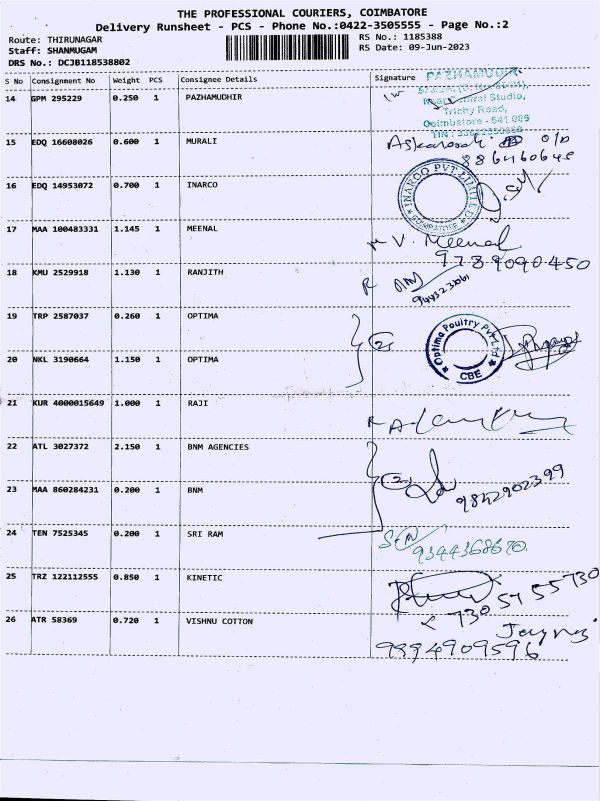 THE PROFESSIONAL COURIERS, COIMBATORE
Delivery Runsheet - PCS - Phone No.:0422-3505555 - Page No.:2
Route: THIRUNAGAR RS No.: 1185388
Staff: SHANMUGAM RS Date: 09-Jun-2023
DRS No.: DCJB118538802
S No Consignment No Weight PCS Consignee Details Signature
PAZHAMUDIR
14 GPM 295229 0.250 1 PAZHAMUDHIR
Studio,
Trichy Road,
Coimbatore - 641 005
15 EDQ 16608026 0.600 1 MURALI
16 EDQ 14953072 0.700 1 INARCO
INARCO PVT LIMITED
COIMBATORE
17 MAA 100483331 1.145 1 MEENAL
V. Meenal
9789090450
18 KMU 2529918 1.130 1 RANJITH
19 TRP 2587037 0.260 1 OPTIMA
2
Optima Poultry Pvt Ltd
CBE
20 NKL 3190664 1.150 1 OPTIMA
21 KUR 4000015649 1.000 1 RAJI
22 ATL 3027372 2.150 1 BNM AGENCIES
2
23 MAA 860284231 0.200 1 BNM
9842902399
24 TEN 7525345 0.200 1 SRI RAM
9344368670
25 TRZ 122112555 0.850 1 KINETIC
730 57 55 730
26 ATR 58369 0.720 1 VISHNU COTTON
9994909596